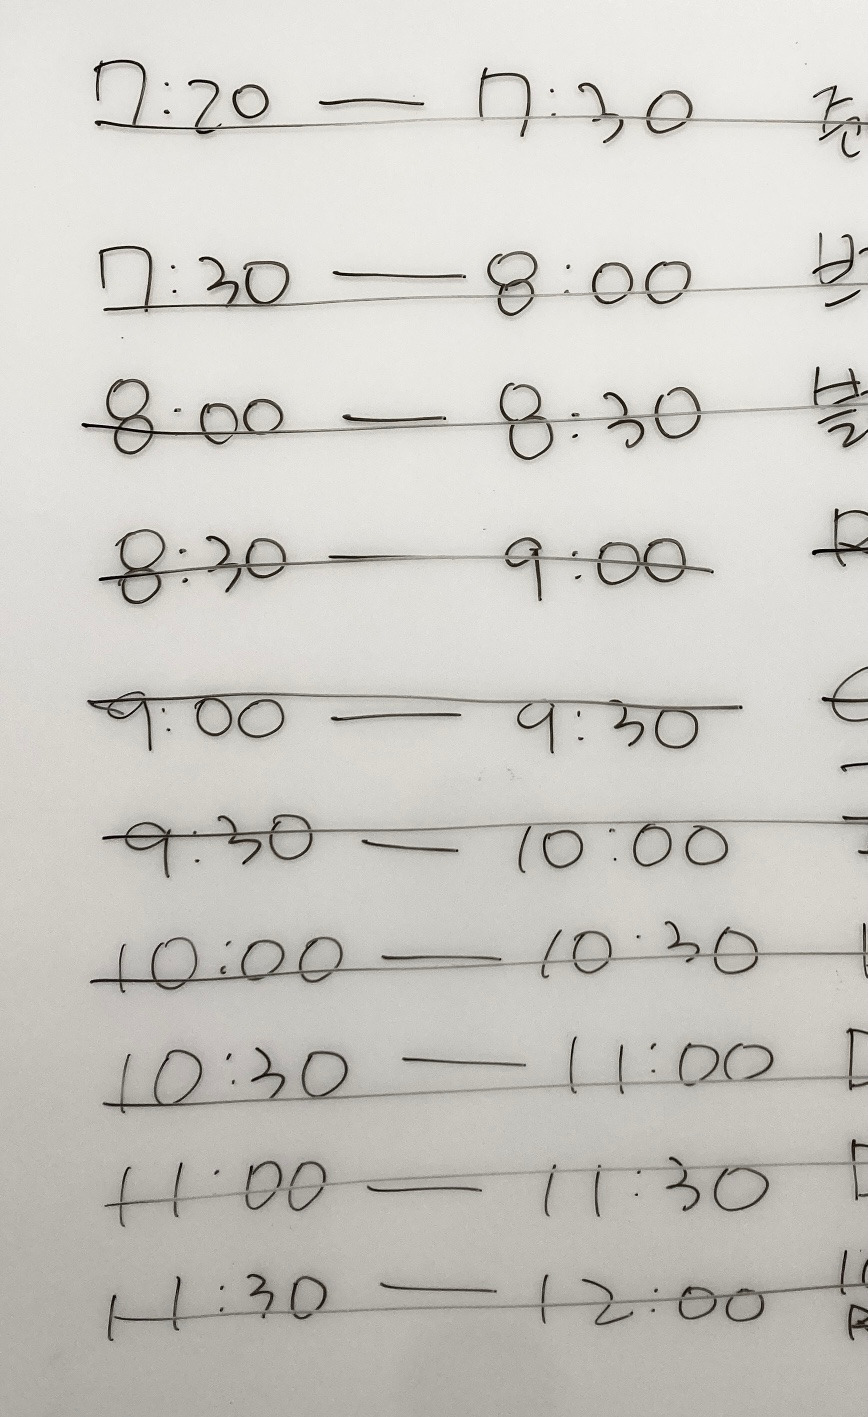 7:20 — 7:30
7:30 — 8:00
8:00 — 8:30
8:30 — 9:00
9:00 — 9:30
9:30 — 10:00
10:00 — 10:30
10:30 — 11:00
11:00 — 11:30
11:30 — 12:00